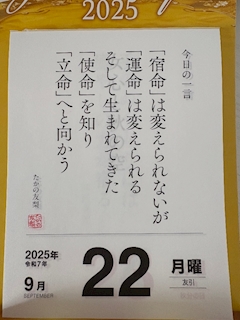 2025
今日の一言
「宿命」は変えられないが
「運命」は変えられる
そして生まれてきた
「使命」を知り
「立命」へと向かう
2025年
令和7年
9月
SEPTEMBER
22
月曜
友引